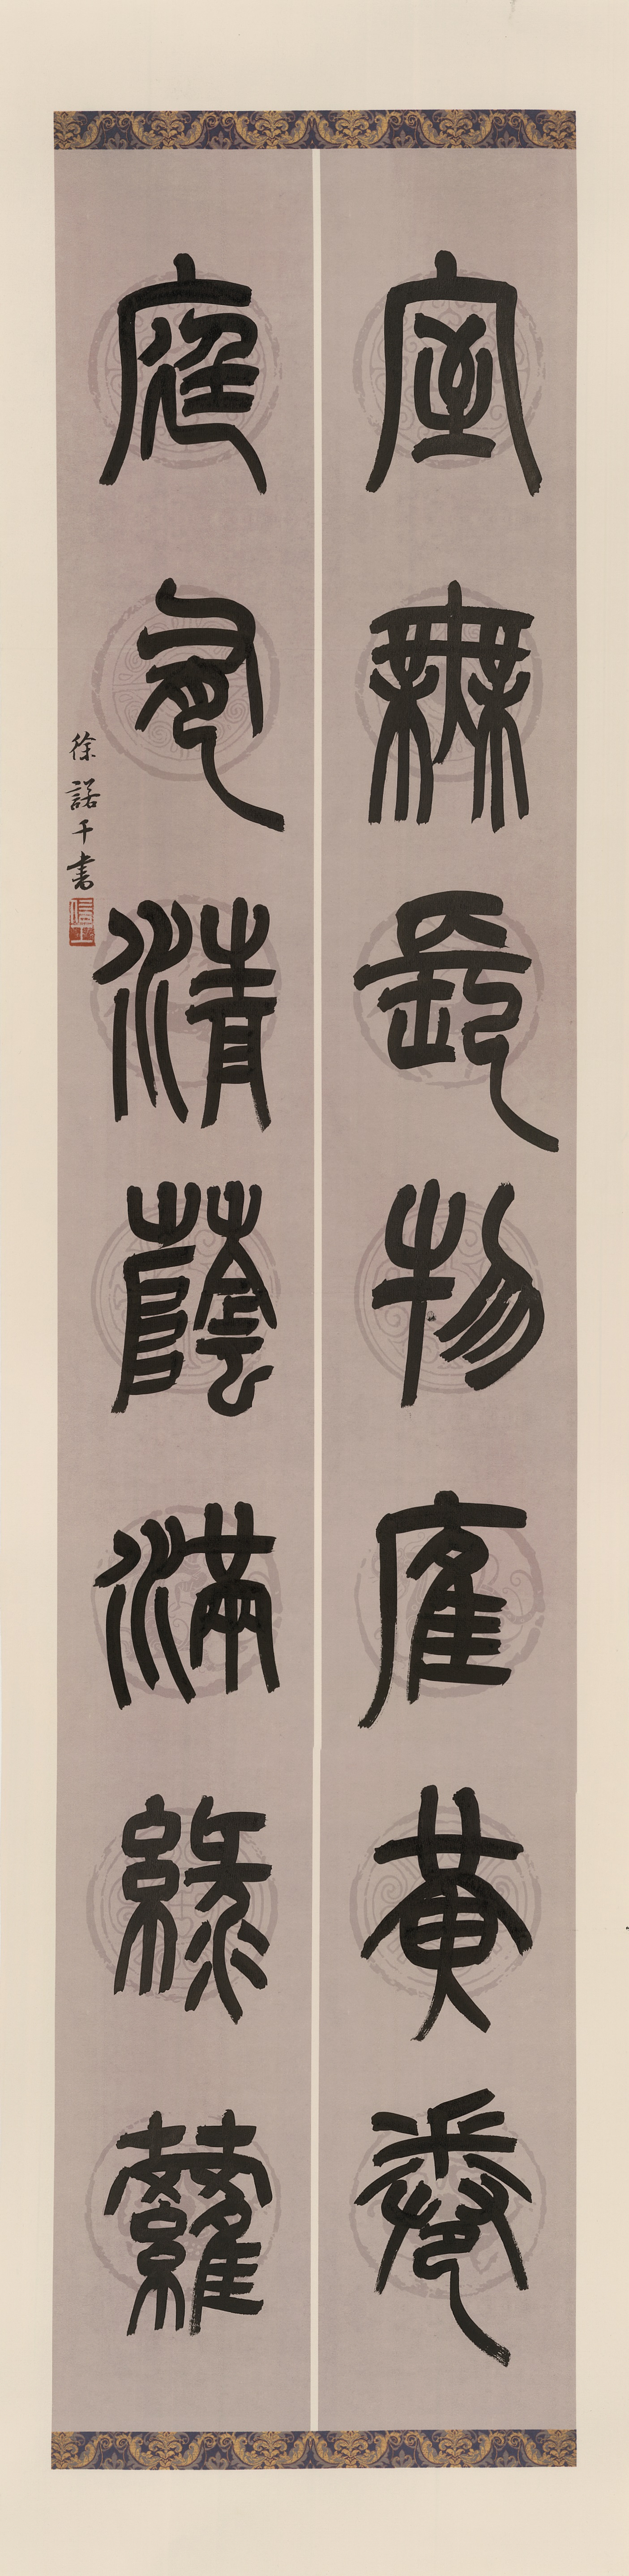 室無長物黃卷
庭清蔭滿綠蘿
徐諾千書